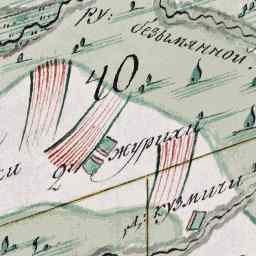 Ру: безымянной
40
2
журихи
кузмичи